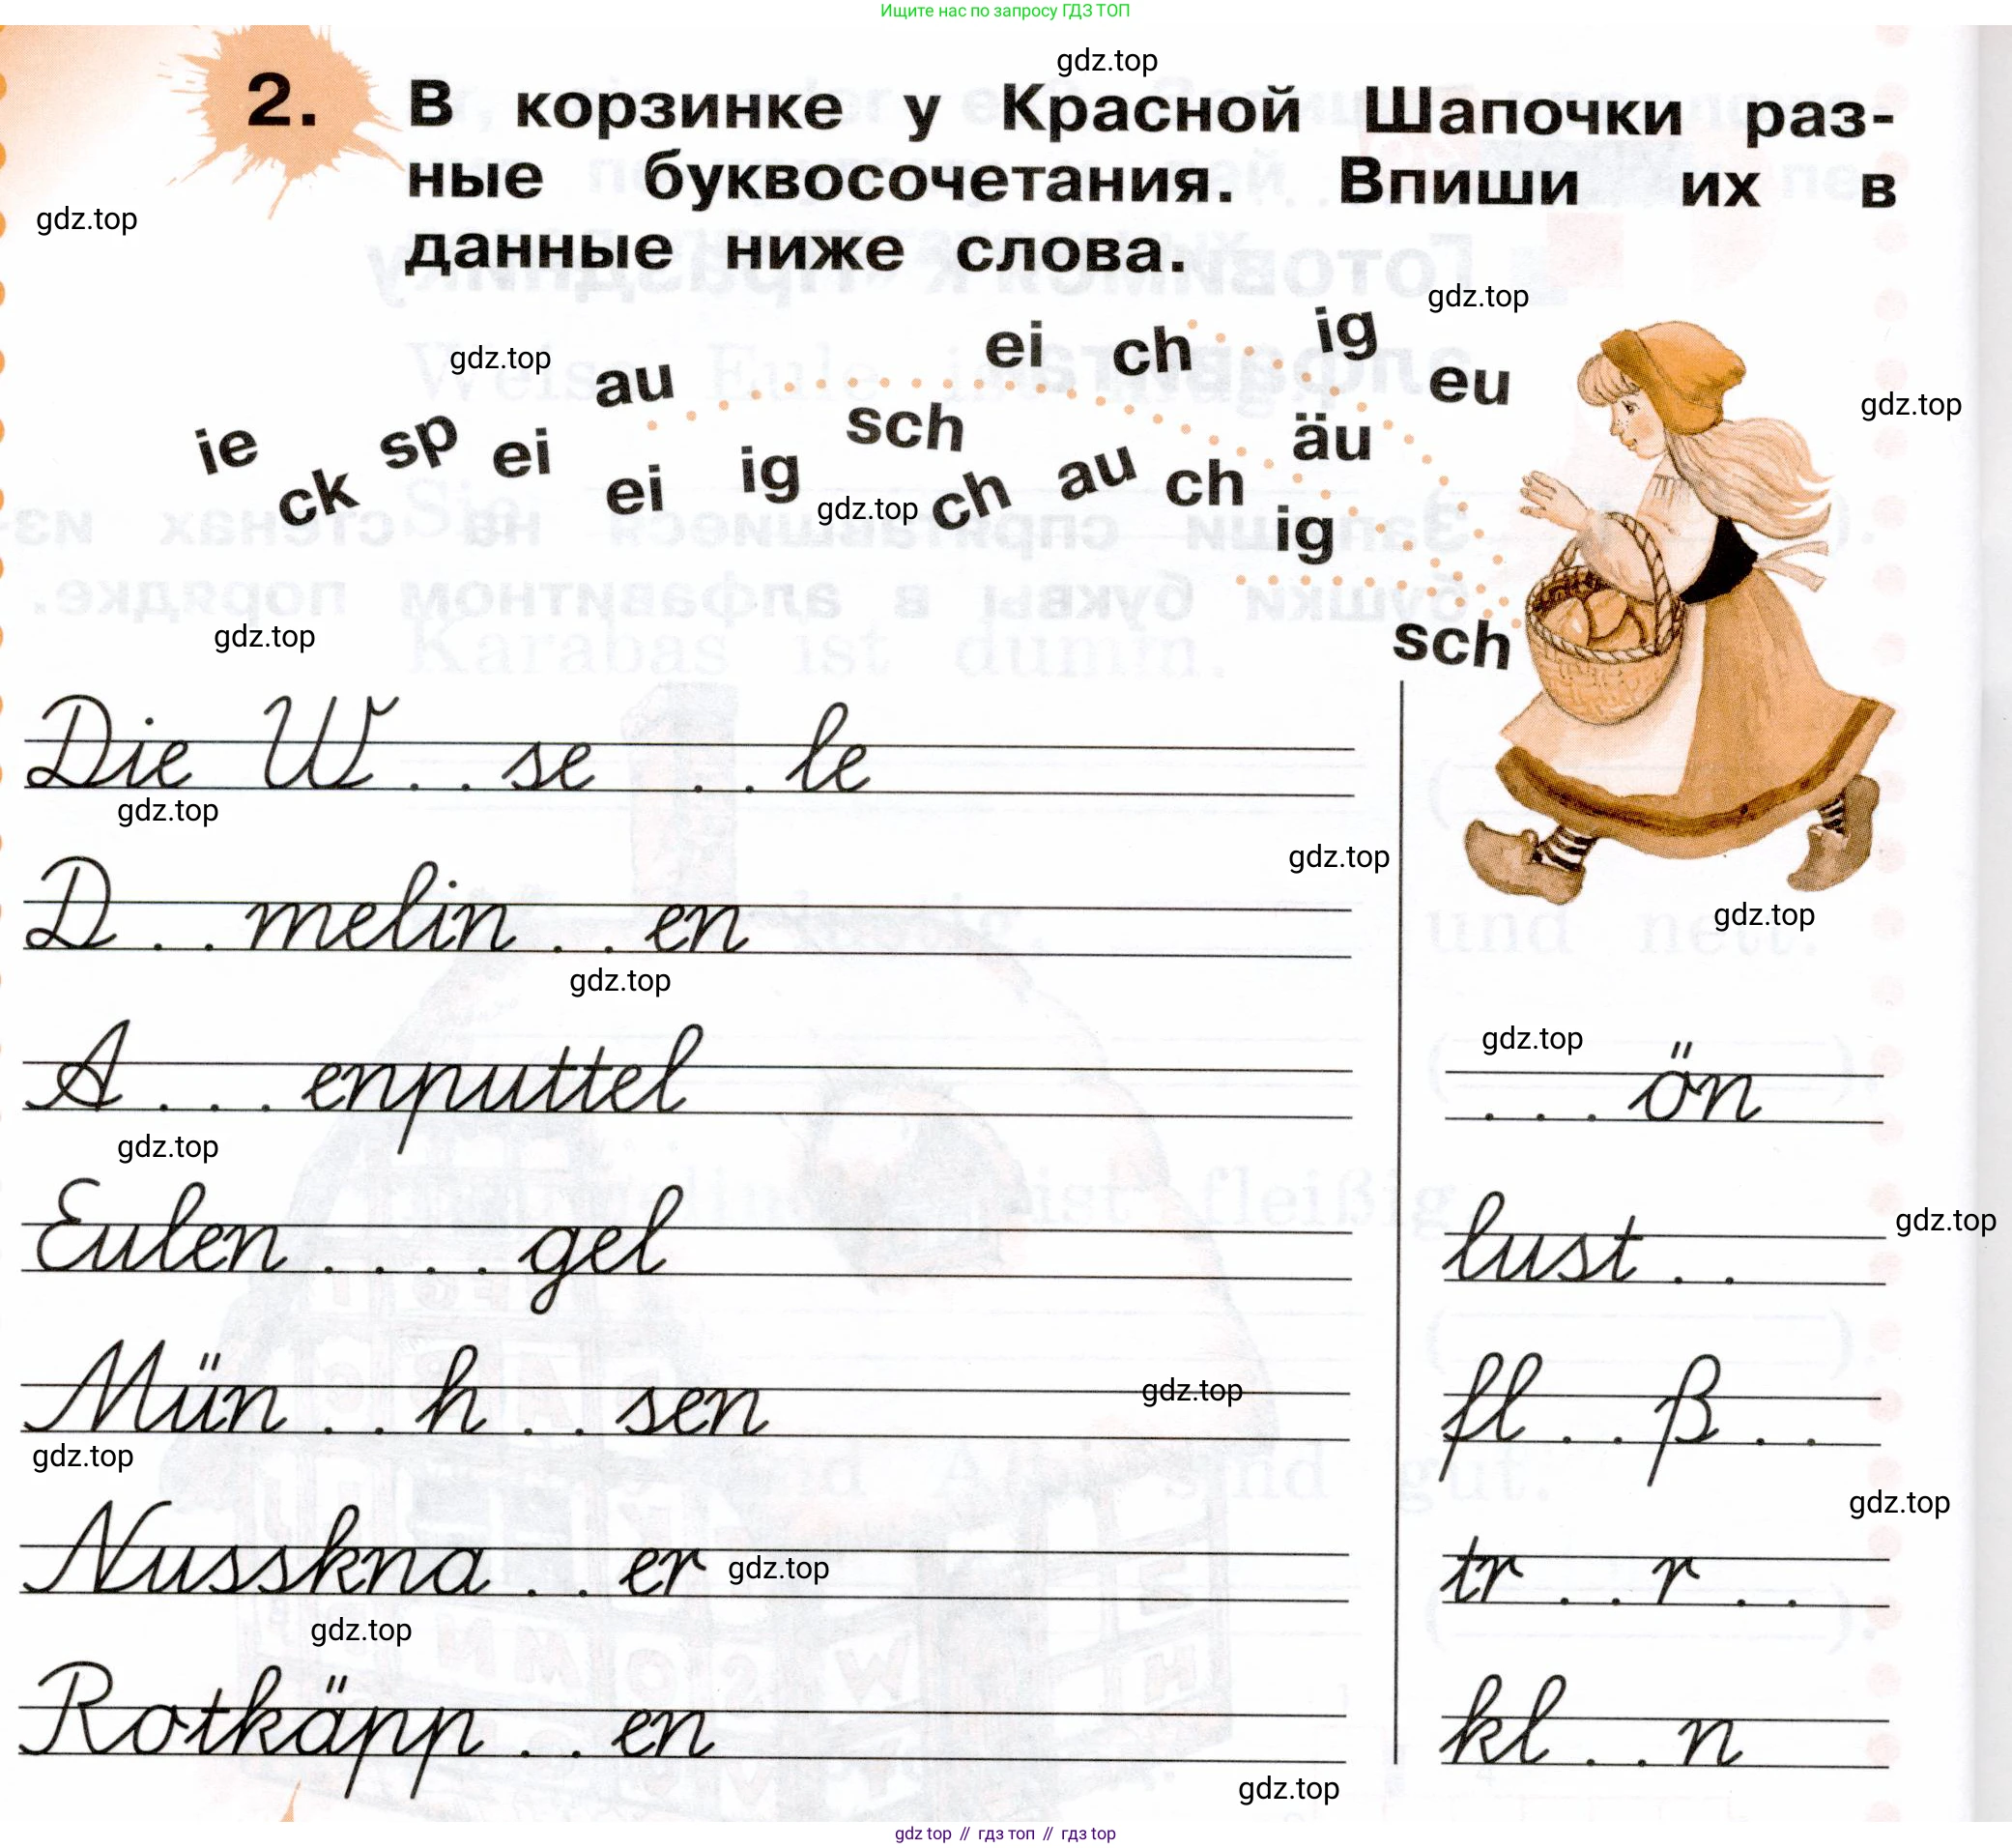 Ищите нас по запросу ГДЗ ТОП
gdz.top
2. В корзинке у Красной Шапочки раз-
ные буквосочетания. Впиши их в
gdz.top
данные ниже слова.
gdz.top
ei ch ig
gdz.top au eu
gdz.top
ie ck sp ei sch äu
ei ig ch au ch
gdz.top
ig
gdz.top
sch
Die W . . se . . le
gdz.top
gdz.top
D . . melin . . en
gdz.top
gdz.top
gdz.top
A . . . enputtel
. . . ön
gdz.top
Eulen . . . . gel
lust . .
gdz.top
Mün . . h . . sen
gdz.top
fl . . ß . .
gdz.top
gdz.top
Nusskna . . er
gdz.top
tr . . r . .
gdz.top
Rotkäpp . . en
kl . . n
gdz.top
gdz top // гдз топ // гдз top